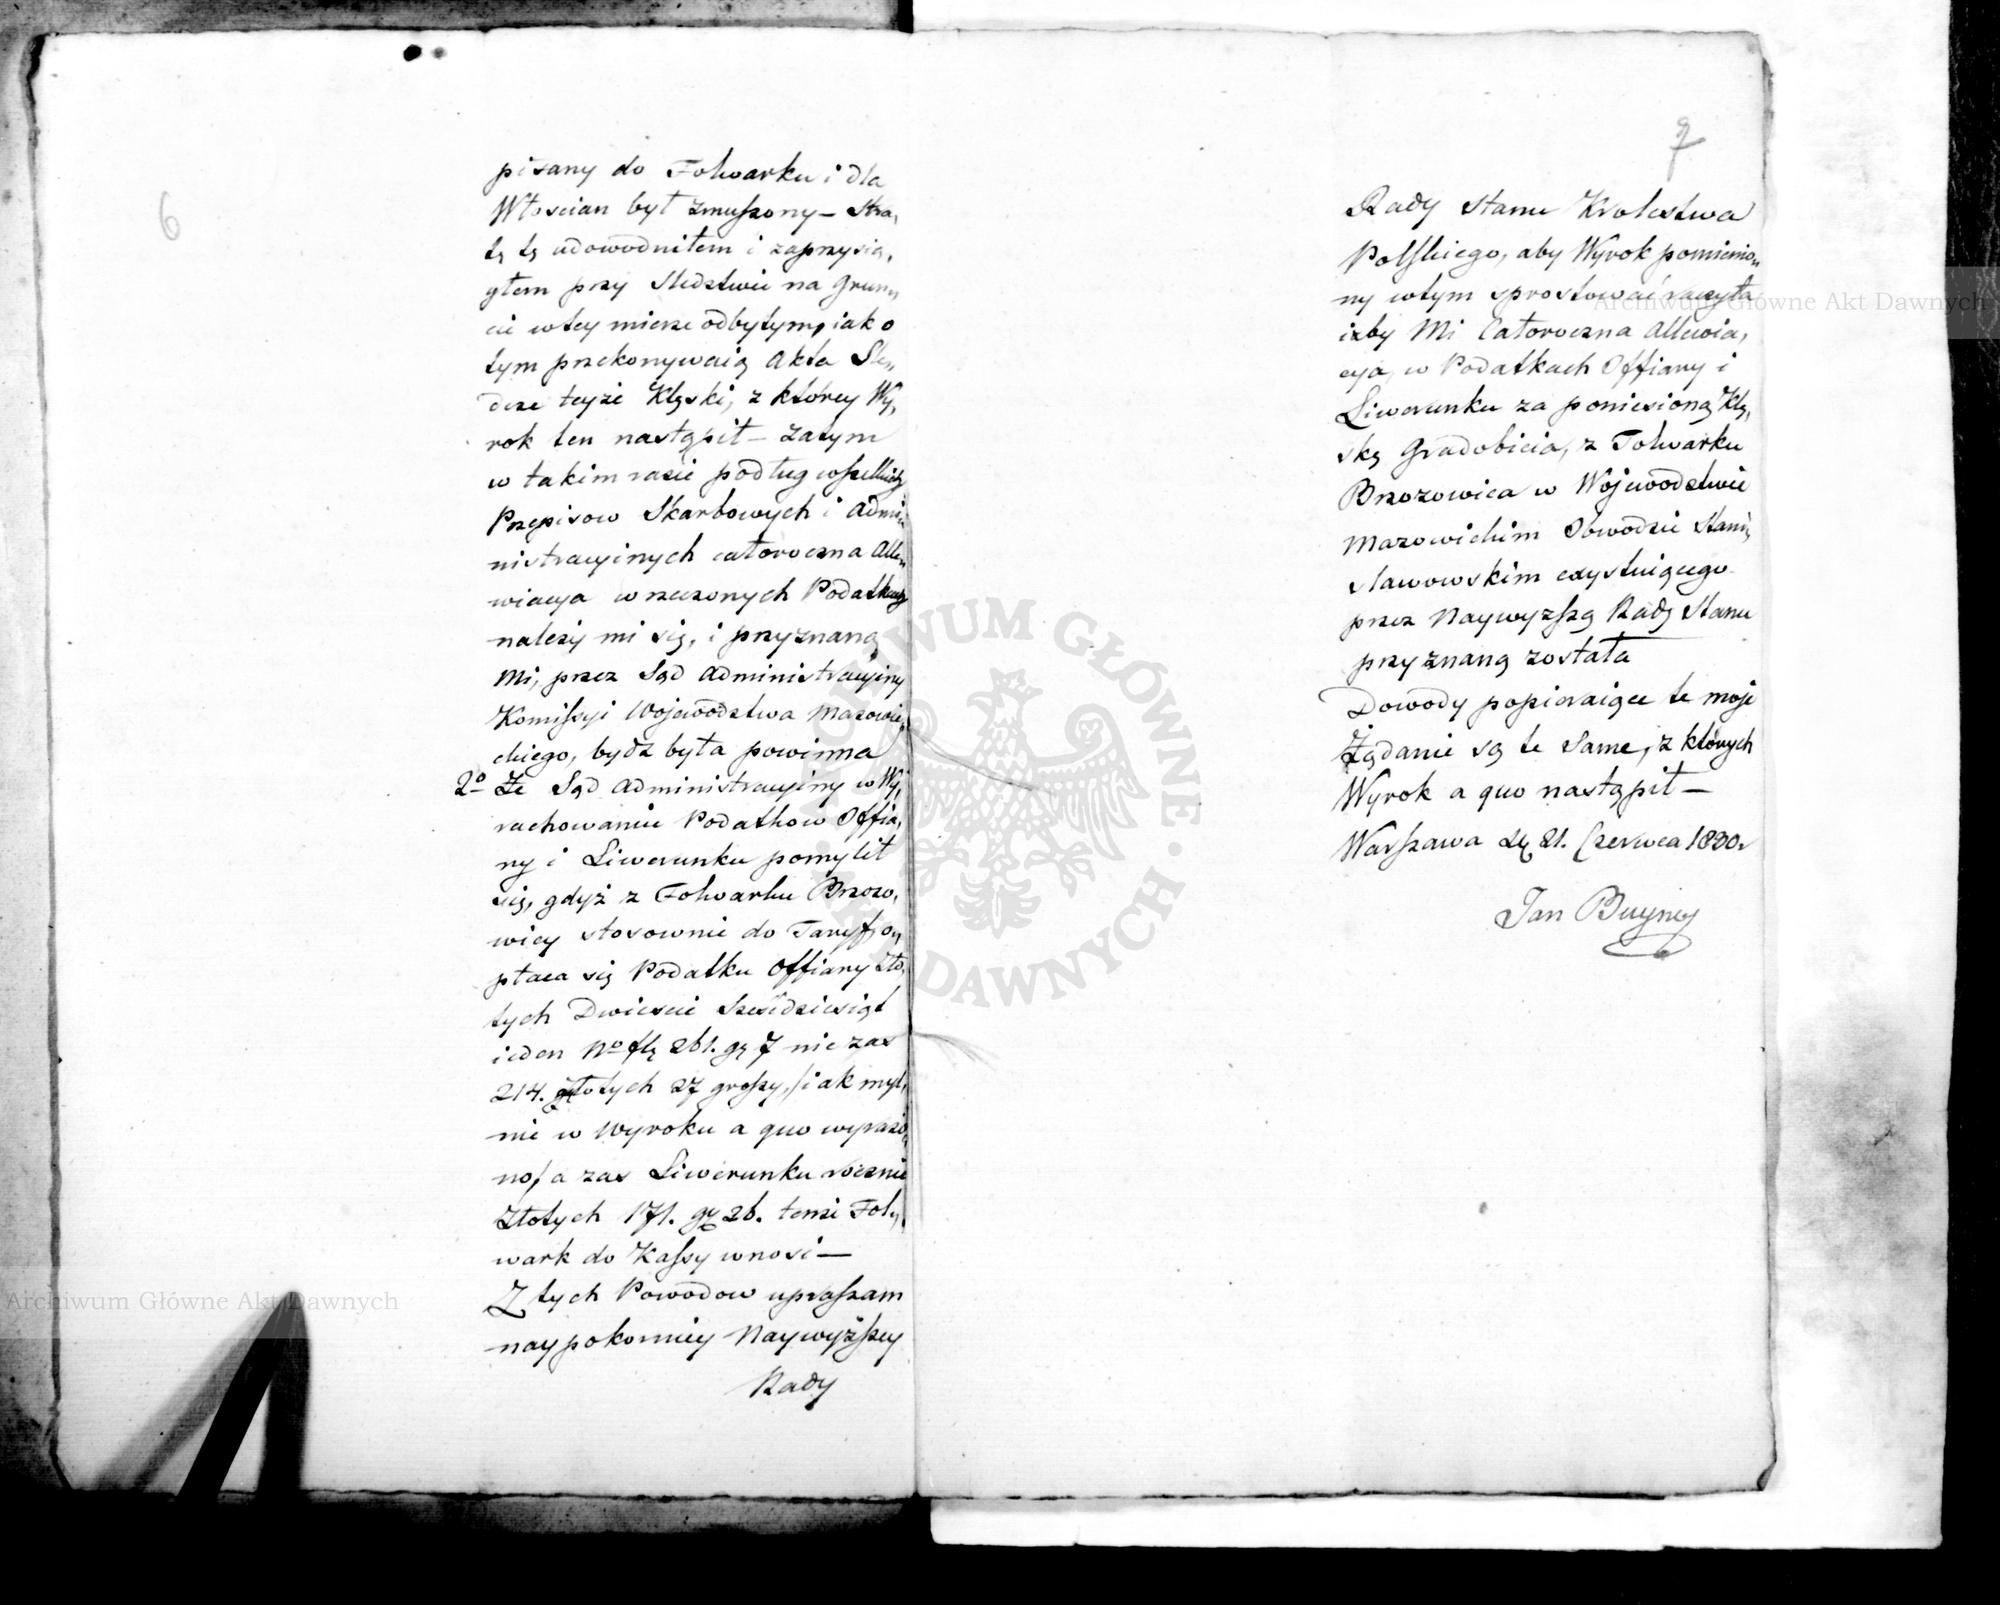 6
pisany do Folwarku i dla
Włoscian był zmuszony – Stra„
tę tę udowodniłem i zaprzysią„
głem przy Sledztwie na Grun„
cie w tey mierze odbytym, iak o
tym przekonywaią Akta Sle„
dcze teyże Klęski, z którey Wy„
rok ten nastąpił – Zatym
w takim razie podług wszelkich
Przepisow Skarbowych i Admi„
nistracyinych całoroczna Alle„
wiacya w rzeczonych Podatkach
należy mi się, i przyznaną
Mi, przez Sąd Administracyiny
Komissyi Wojewodztwa Mazowie„
ckiego, bydz była powinna
2o Że Sąd Administracyiny w Wy„
rachowaniu Podatkow Offia„
ry i Liwerunku pomylił
się, gdyż z Folwarku Brzozo„
wicy stosownie do Taryff, o„
płaca się Podatku Offiary Zło„
tych Dwiescie Szesśdziesiąt
ieden No fl 261. gr 7 nie zas
214. złotych 27 groszy, /iak myl„
nie w Wyroku a quo wyrażo„
no/ a zas Liwerunku rocznie
Złotych 171. gr 26. tenże Fol„
wark do Kassy wnosi –
Z tych Powodow upraszam
naypokorniey Naywyższey
Rady
7
Rady Stanu Krolestwa
Polskiego, aby Wyrok pomienio„
ny w tym sprostować raczyła
iżby Mi Całoroczna Allewia„
cya, w Podatkach Offiary i
Liwerunku za poniesioną Klę„
skę Gradobicia, z Folwarku
Brzozowica w Wojewodztwie
Mazowickim Obwodzie Stani„
sławowskim exystuiącego
przez Naywyzszą Radę Stanu
przyznaną została
Dowody popieraiące te moje
Żądanie są te Same, z których
Wyrok a quo nastąpił –
Warszawa d. 21. Czerwca 1830 r
Jan Buyney
Archiwum Główne Akt Dawnych
Archiwum Główne Akt Dawnych
ARCHIWUM GŁÓWNE AKT DAWNYCH